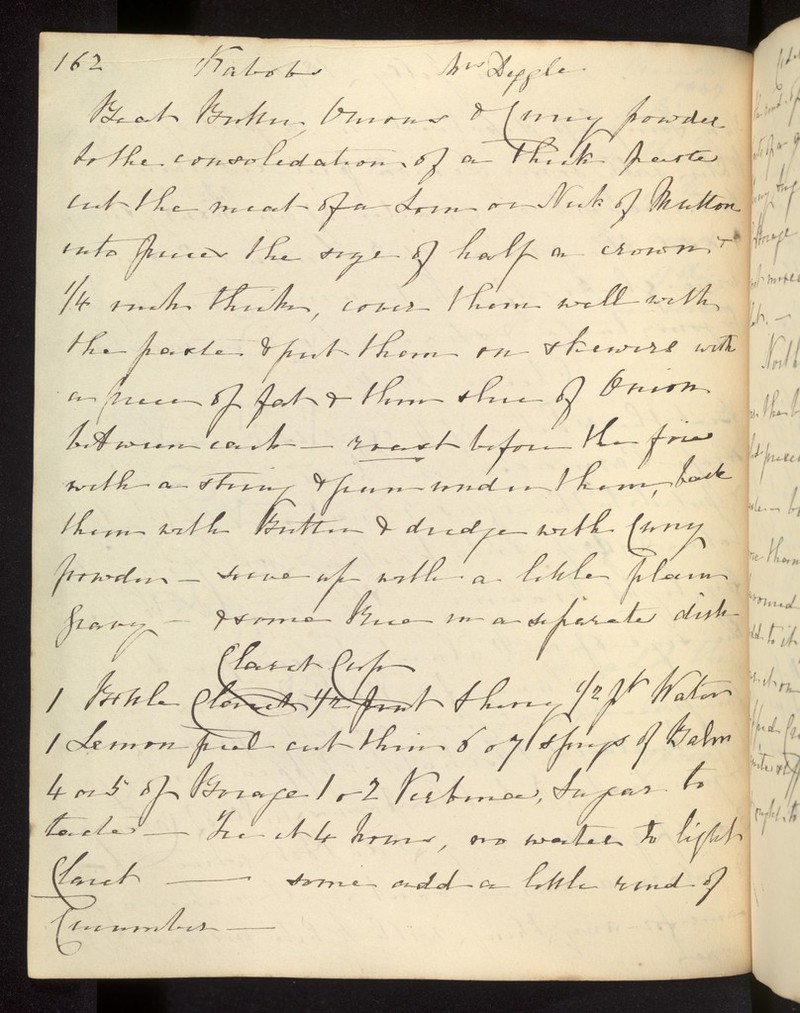 162 Kabobs Mrs Deggle
Beat Butter, Onions & Curry powder
to the consoledation of a thick paste
cut the meat of a Loin or Neck of Mutton
into pieces the size of half a crown &
1/4 inch thick, cover them well with
the paste & put them on skewers with
a piece of fat & thin slice of Onion
between each — roast before the fire
with a string & pan under them, bast
them with Butter & dredge with Curry
powder — serve up with a little plain
gravy — & some Rice in a separate dish
Claret Cup
1 Bottle Claret 1/2 pint Sherry 1/2 pt Water
1 Lemon peel cut thin 6 or 7 sprigs of Balm
4 or 5 of Borage 1 or 2 Verbena, Sugar to
taste — Ice it 4 hours, no water to light
Claret — some add a little rind of
Cucumber —